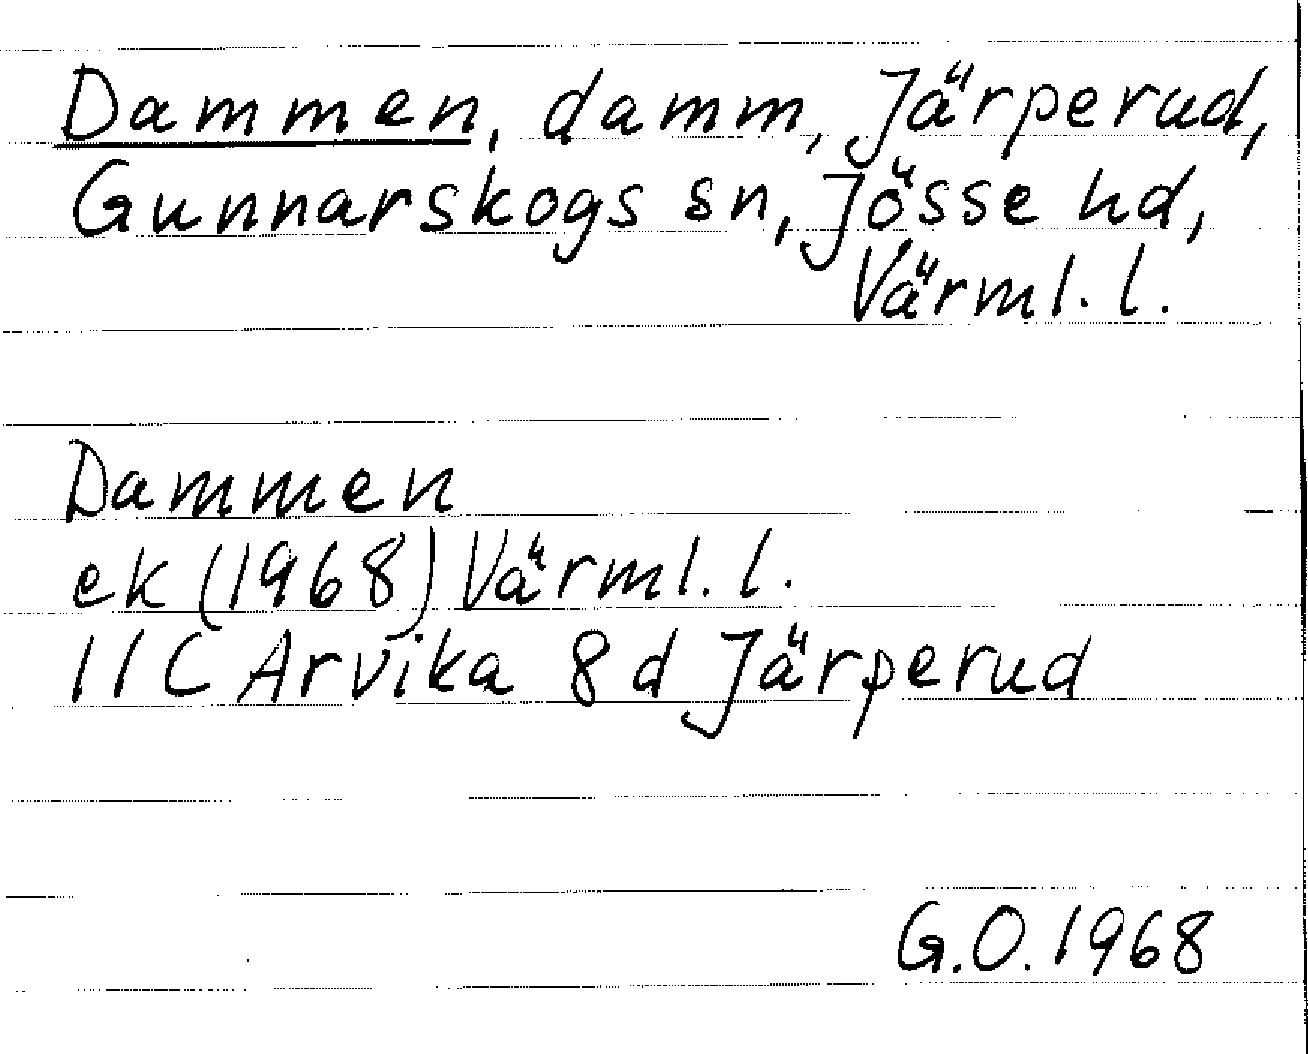 Dammen, damm, Järperud,
Gunnarskogs sn, Jösse hd,
Värml. l.
Dammen
ek (1968) Värml. l.
11C Arvika 8d Järperud
G.O. 1968